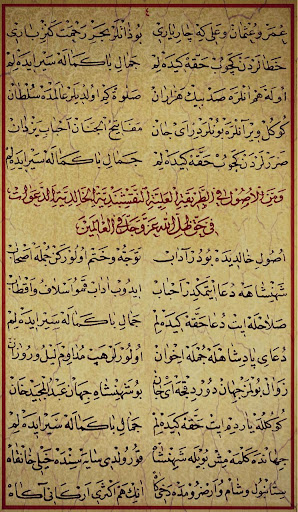 ٤
عمر و عثمان و علی که چار یاری بودانلر بحر رحمت کنز باری
خطالردن کچوب حقه کیده لم جمال با کماله سیر ایده لم
اوله هم انلره صد بیك هزاران صلوة کیم اولدیلر عالمده سلطان
کوکل ویر آنلره بونلردر ای جان مفاتیح الجنان احباب یزدان
ضررلردن کچوب حقه کیده لم جمال با کماله سیر ایده لم
ومن الاصول فی الطریقة العلیة النقشبندیة الخالدیة الدعوات
فی حق ظل الله عز وجل فی العالمین
اصول خالدیده بودر آداب توجه و ختم اولورکن جمله اصحاب
شهنشاهه دعا ایتمکدر احباب ایدوب آداب قمو اسلاف و اقطاب
صلاحله ایت دعا حقه کیده لم جمال با کماله سیر ایده لم
دعای پادشاهله جمله اخوان اولورلر هپ مداوم لیل و روزان
زوال بولمز جهان دوردقجه ای جان بو شهنشاه جهان عبدالمجید خان
کوکلله یاردم ایت حقه کیده لم جمال با کماله سیر ایده لم
جهانده کلمه مش بویله شهنشا قورولدی سایه سنده خیلی خانقاه
ستانبول و شام و ارضرومده انك هم اکثری ارکانی آکاه